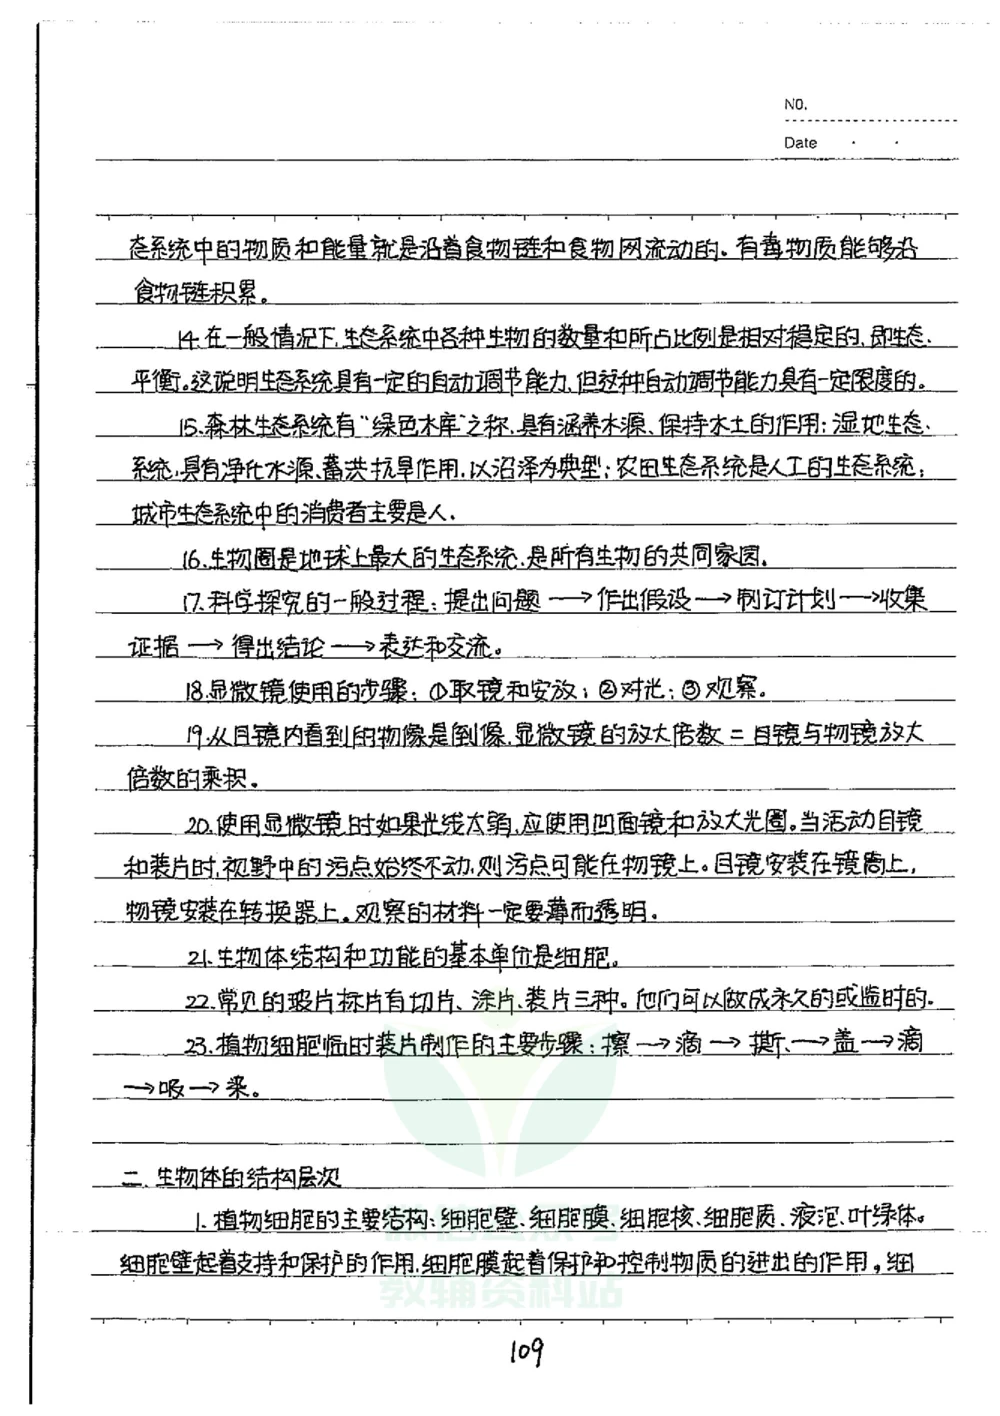 NO.
Date
态系统中的物质和能量就是沿着食物链和食物网流动的。有毒物质能够沿
食物链积累。
14.在一般情况下,生态系统中各种生物的数量和所占比例是相对稳定的,即生态
平衡。这说明生态系统具有一定的自动调节能力,但这种自动调节能力具有一定限度的。
15.森林生态系统有“绿色水库”之称,具有涵养水源、保持水土的作用;湿地生态
系统,具有净化水源、蓄洪抗旱作用,以沼泽为典型;农田生态系统是人工的生态系统;
城市生态系统中的消费者主要是人.
16.生物圈是地球上最大的生态系统,是所有生物的共同家园。
17.科学探究的一般过程:提出问题→作出假设→制订计划→收集
证据→得出结论→表达和交流。
18.显微镜使用的步骤:①取镜和安放;②对光;③观察。
19.从目镜内看到的物像是倒像,显微镜的放大倍数=目镜与物镜放大
倍数的乘积。
20.使用显微镜时如果光线太弱,应使用凹面镜和放大光圈。当活动目镜
和装片时,视野中的污点始终不动,则污点可能在物镜上。目镜安装在镜筒上,
物镜安装在转换器上。观察的材料一定要薄而透明.
21.生物体结构和功能的基本单位是细胞。
22.常见的玻片标片有切片、涂片、装片三种。他们可以做成永久的或临时的.
23.植物细胞临时装片制作的主要步骤:擦→滴→撕→盖→滴
→吸→染。
二.生物体的结构层次
1.植物细胞的主要结构:细胞壁、细胞膜、细胞核、细胞质、液泡、叶绿体。
细胞壁起着支持和保护的作用,细胞膜起着保护和控制物质的进出的作用,细
教辅资料站
109